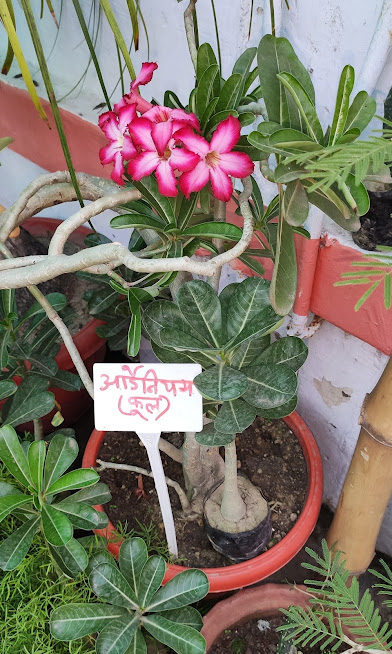 आर्डेनियम
(फूल)